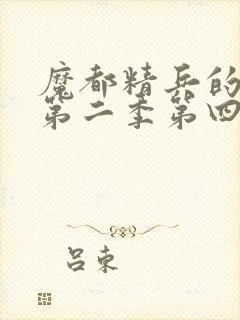 魔都精兵的
第二季第四
吕束